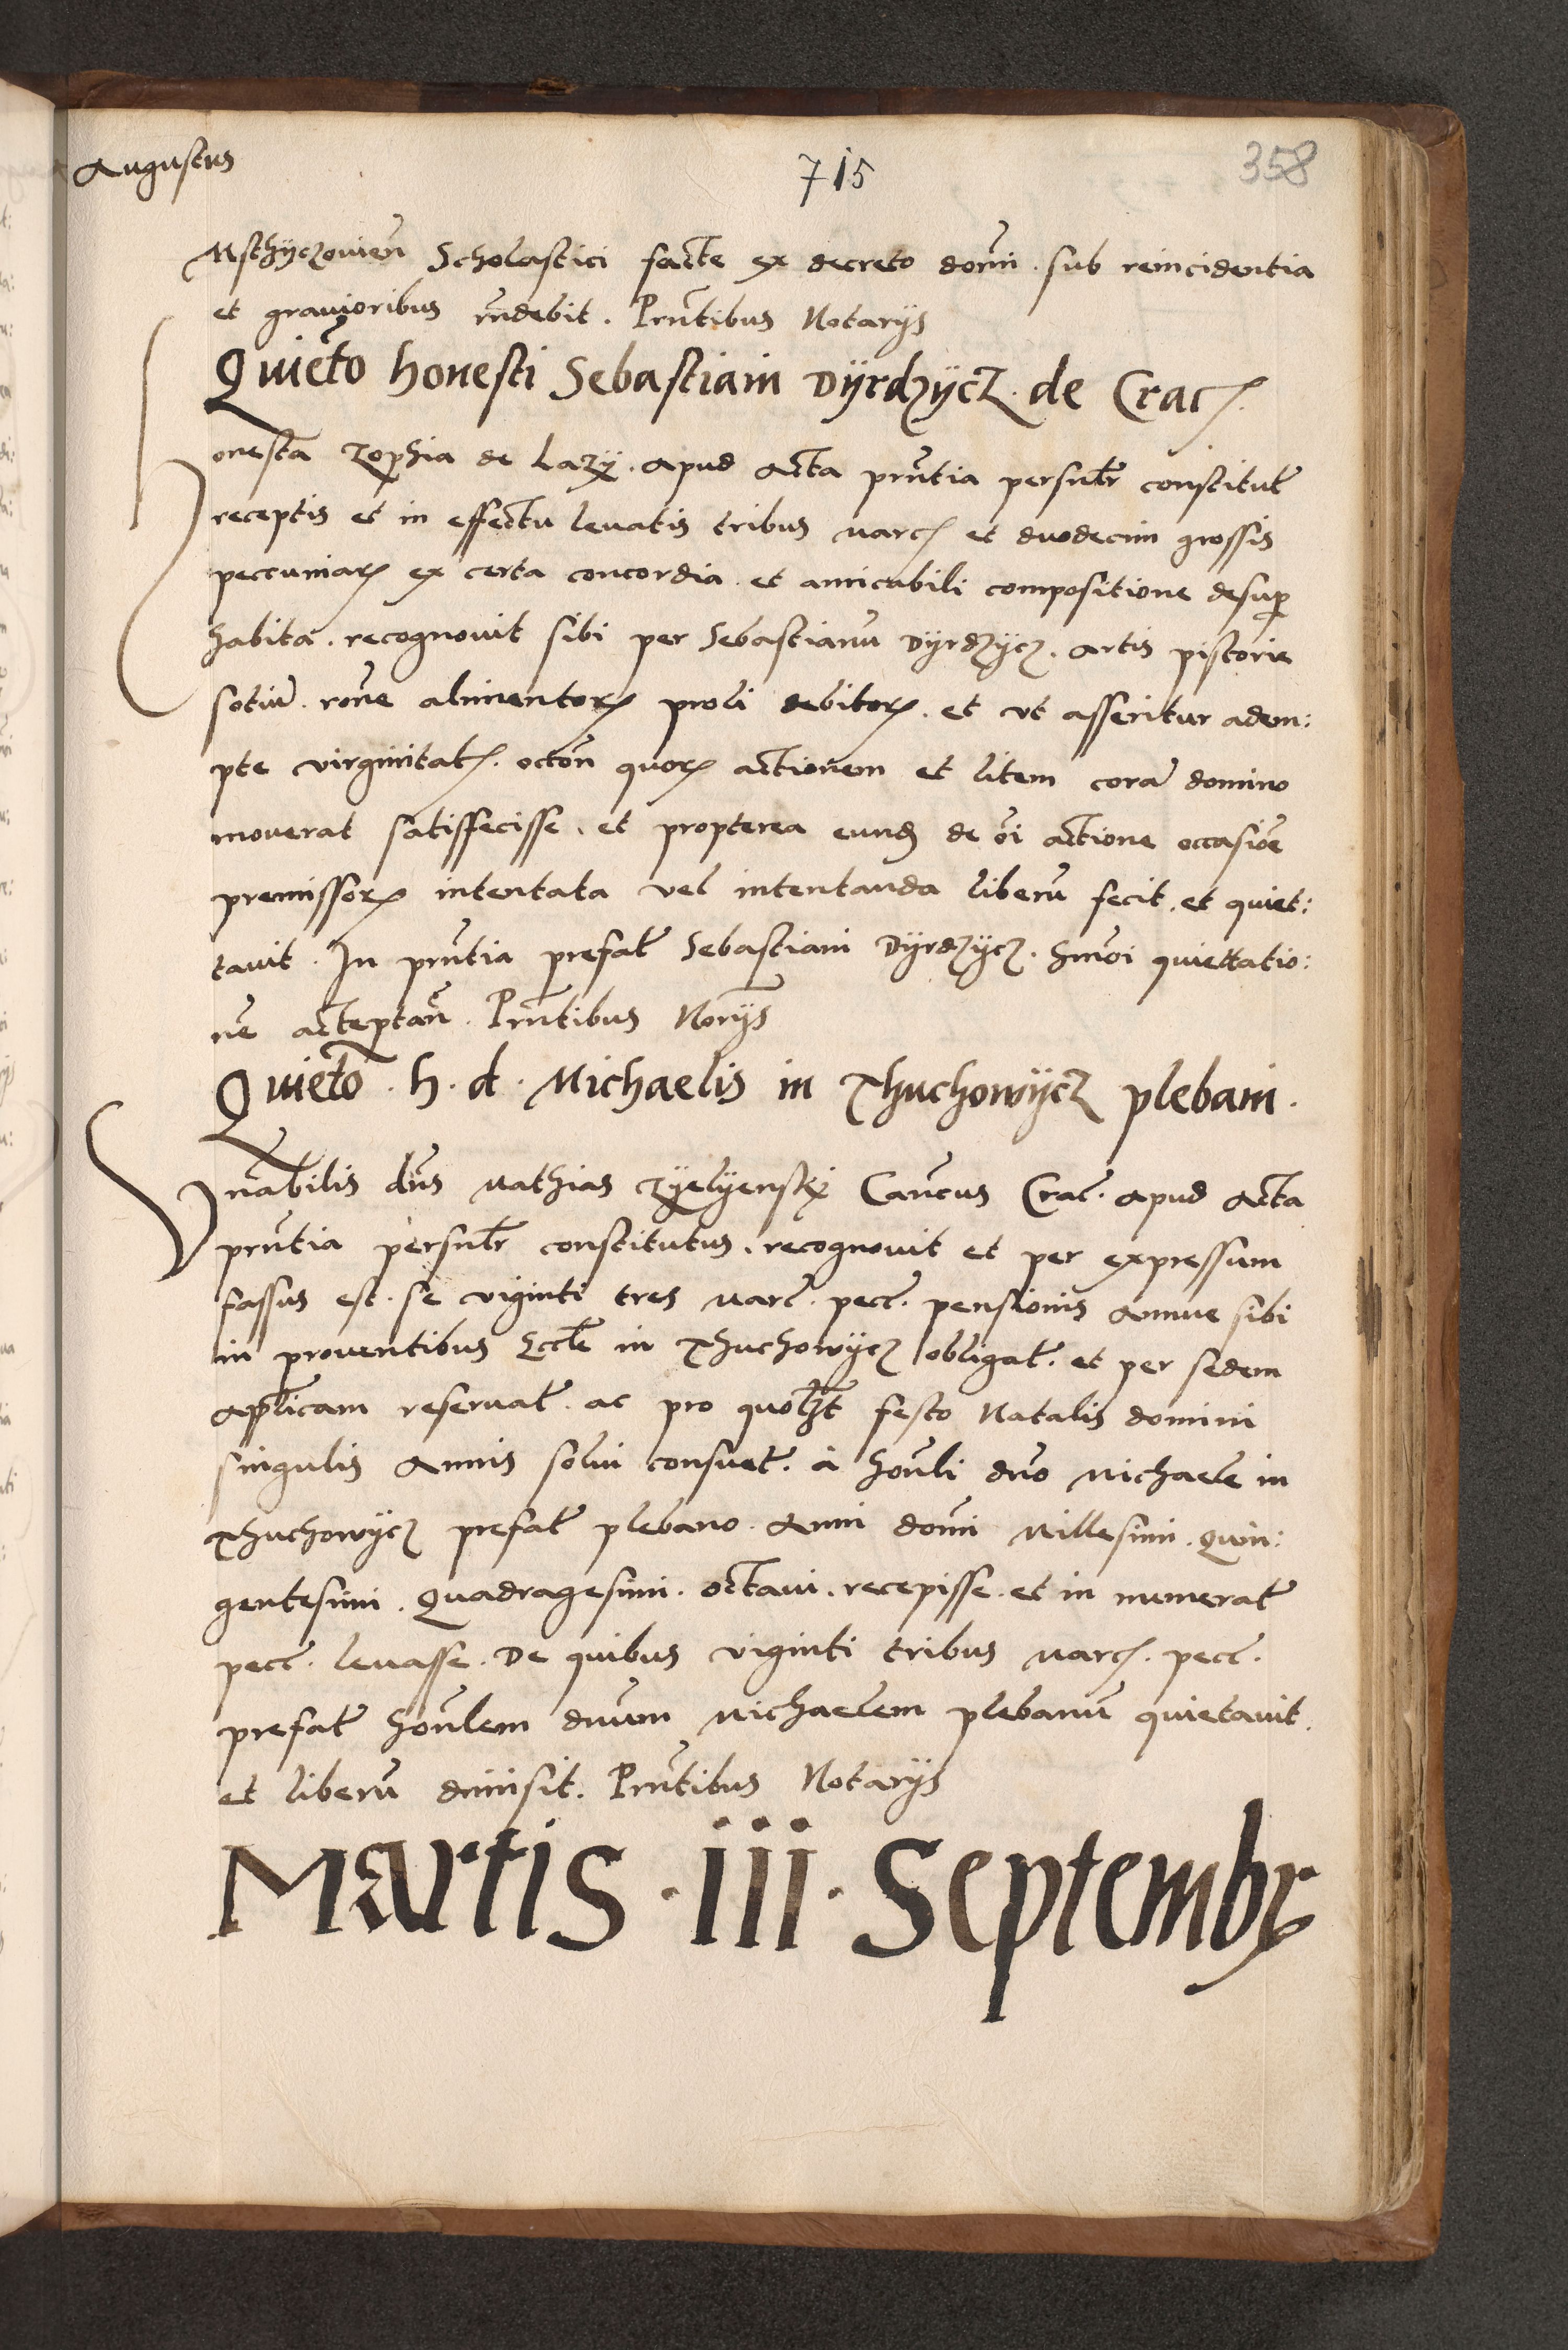 Augustus
715
358
Msthÿczouien̄ Scholastici facte ex decreto domī . sub reincidentia
et grauioribus rn̄debit . Prn̄tibus Notarÿs
Quiet̄o honesti Sebastiani Dÿrdzÿcz . de Crac.
Honesta Zophia de Lazÿ . apud acta prn̄tia personal̄r constitut̄
receptis et in effectu leuatis tribus marc. et duodecim grossis
peccuniaꝝ ex certa concordia . et amicabili compositione desup̄
habita . recognouit sibi per Sebastianū Dÿrdzÿcz . artis pistorie
sotiū . rōne alimentoꝝ proli debitoꝝ . et vt asseritur adem:
pte virginitat̄ . occōn quoꝝ actionem et litem corā domino
mouerat satisfecisse . et propterea eund̄ de oī actione occasiōe
premissoꝝ intentata vel intentanda liberū fecit . et quiet:
tauit . In prn̄tia prefat̄ Sebastiani Dÿrdzÿcz . hmōi quiettatio:
ne acceptan̄ . Prn̄tibus Norÿs
Quiet̄o . h . d . Michaelis in Thuchowÿcz plebani .
Vn̄abilis dn̄s Mathias Zÿelÿenskÿ Can̄cus Crac̄ . apud acta
prn̄tia personal̄r constitutus . recognouit et per expressum
fassus est . se viginti tres marc̄ . pecc̄ . pensionis annue sibi
in prouentibus Eccl̄e in Thuchowÿcz obligat̄ . et per sedem
apl̄icam reseruat̄ . ac pro quol̄t festo Natalis domini
singulis annis solui consuet̄ . à hon̄li dn̄o Michaele in
Thuchowÿcz prefat̄ plebano . anni domī Millesimi . Quin:
gentesimi . Quadragesimi . octaui . recepisse . et in numerat̄
pecc̄ . leuasse . De quibus viginti tribus marc. pecc̄ .
prefat̄ hon̄lem dn̄um Michaelem plebanū quietauit .
et liberū dimisit . Prn̄tibus Notarÿs
Martis . iii . Septembr̄